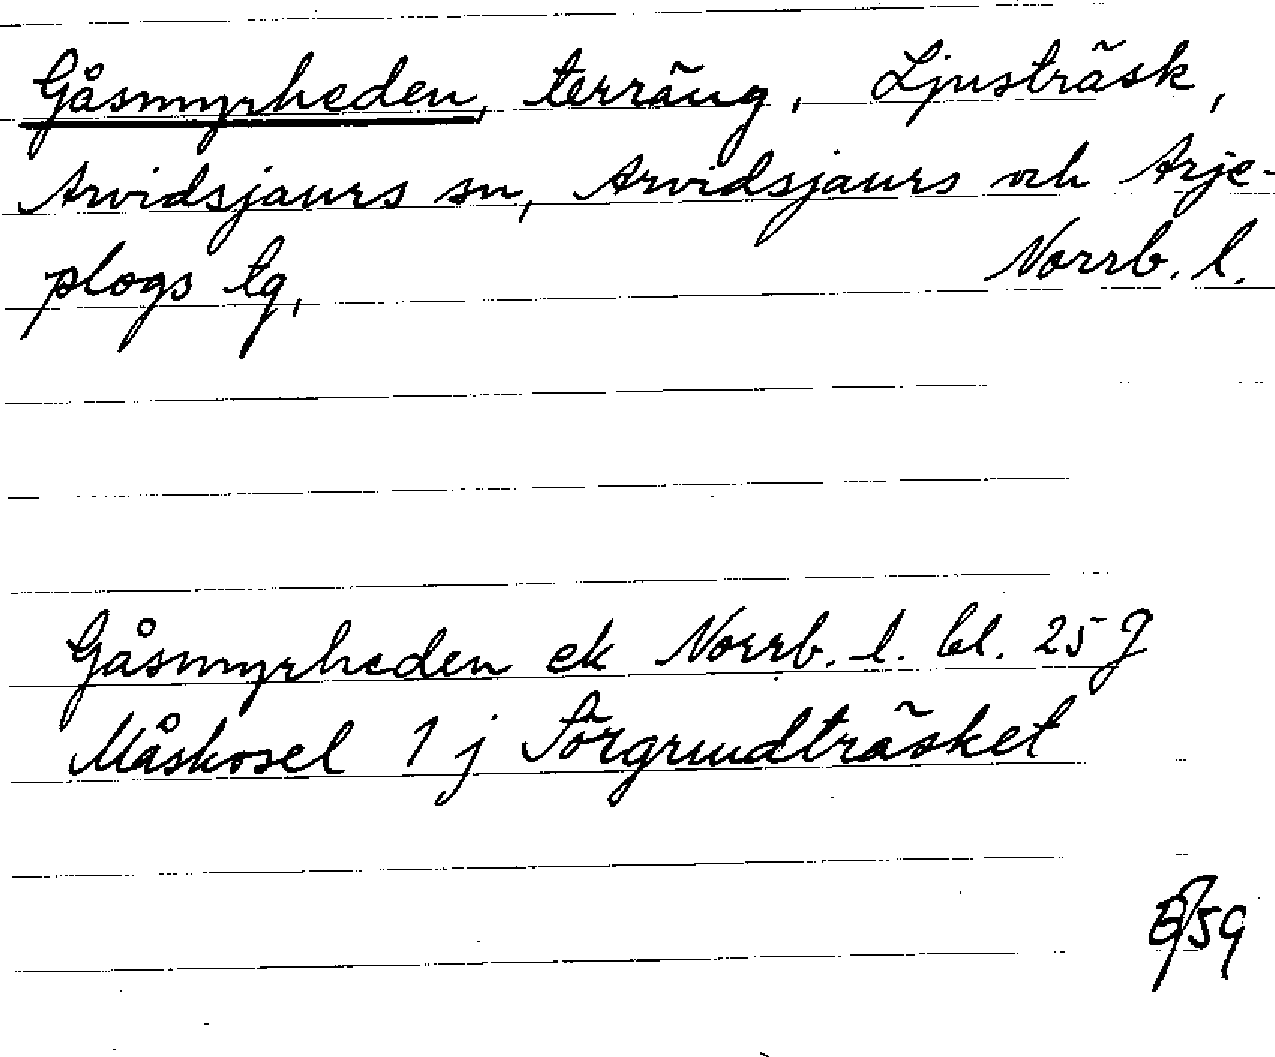 Gåsmyrheden, terräng, Ljusträsk,
Arvidsjaurs sn, Arvidsjaurs och Arje-
plogs tg, Norrb. l.
Gåsmyrheden ek Norrb. l. bl. 25 J
Måskosel 1 j Sörgrundträsket
59